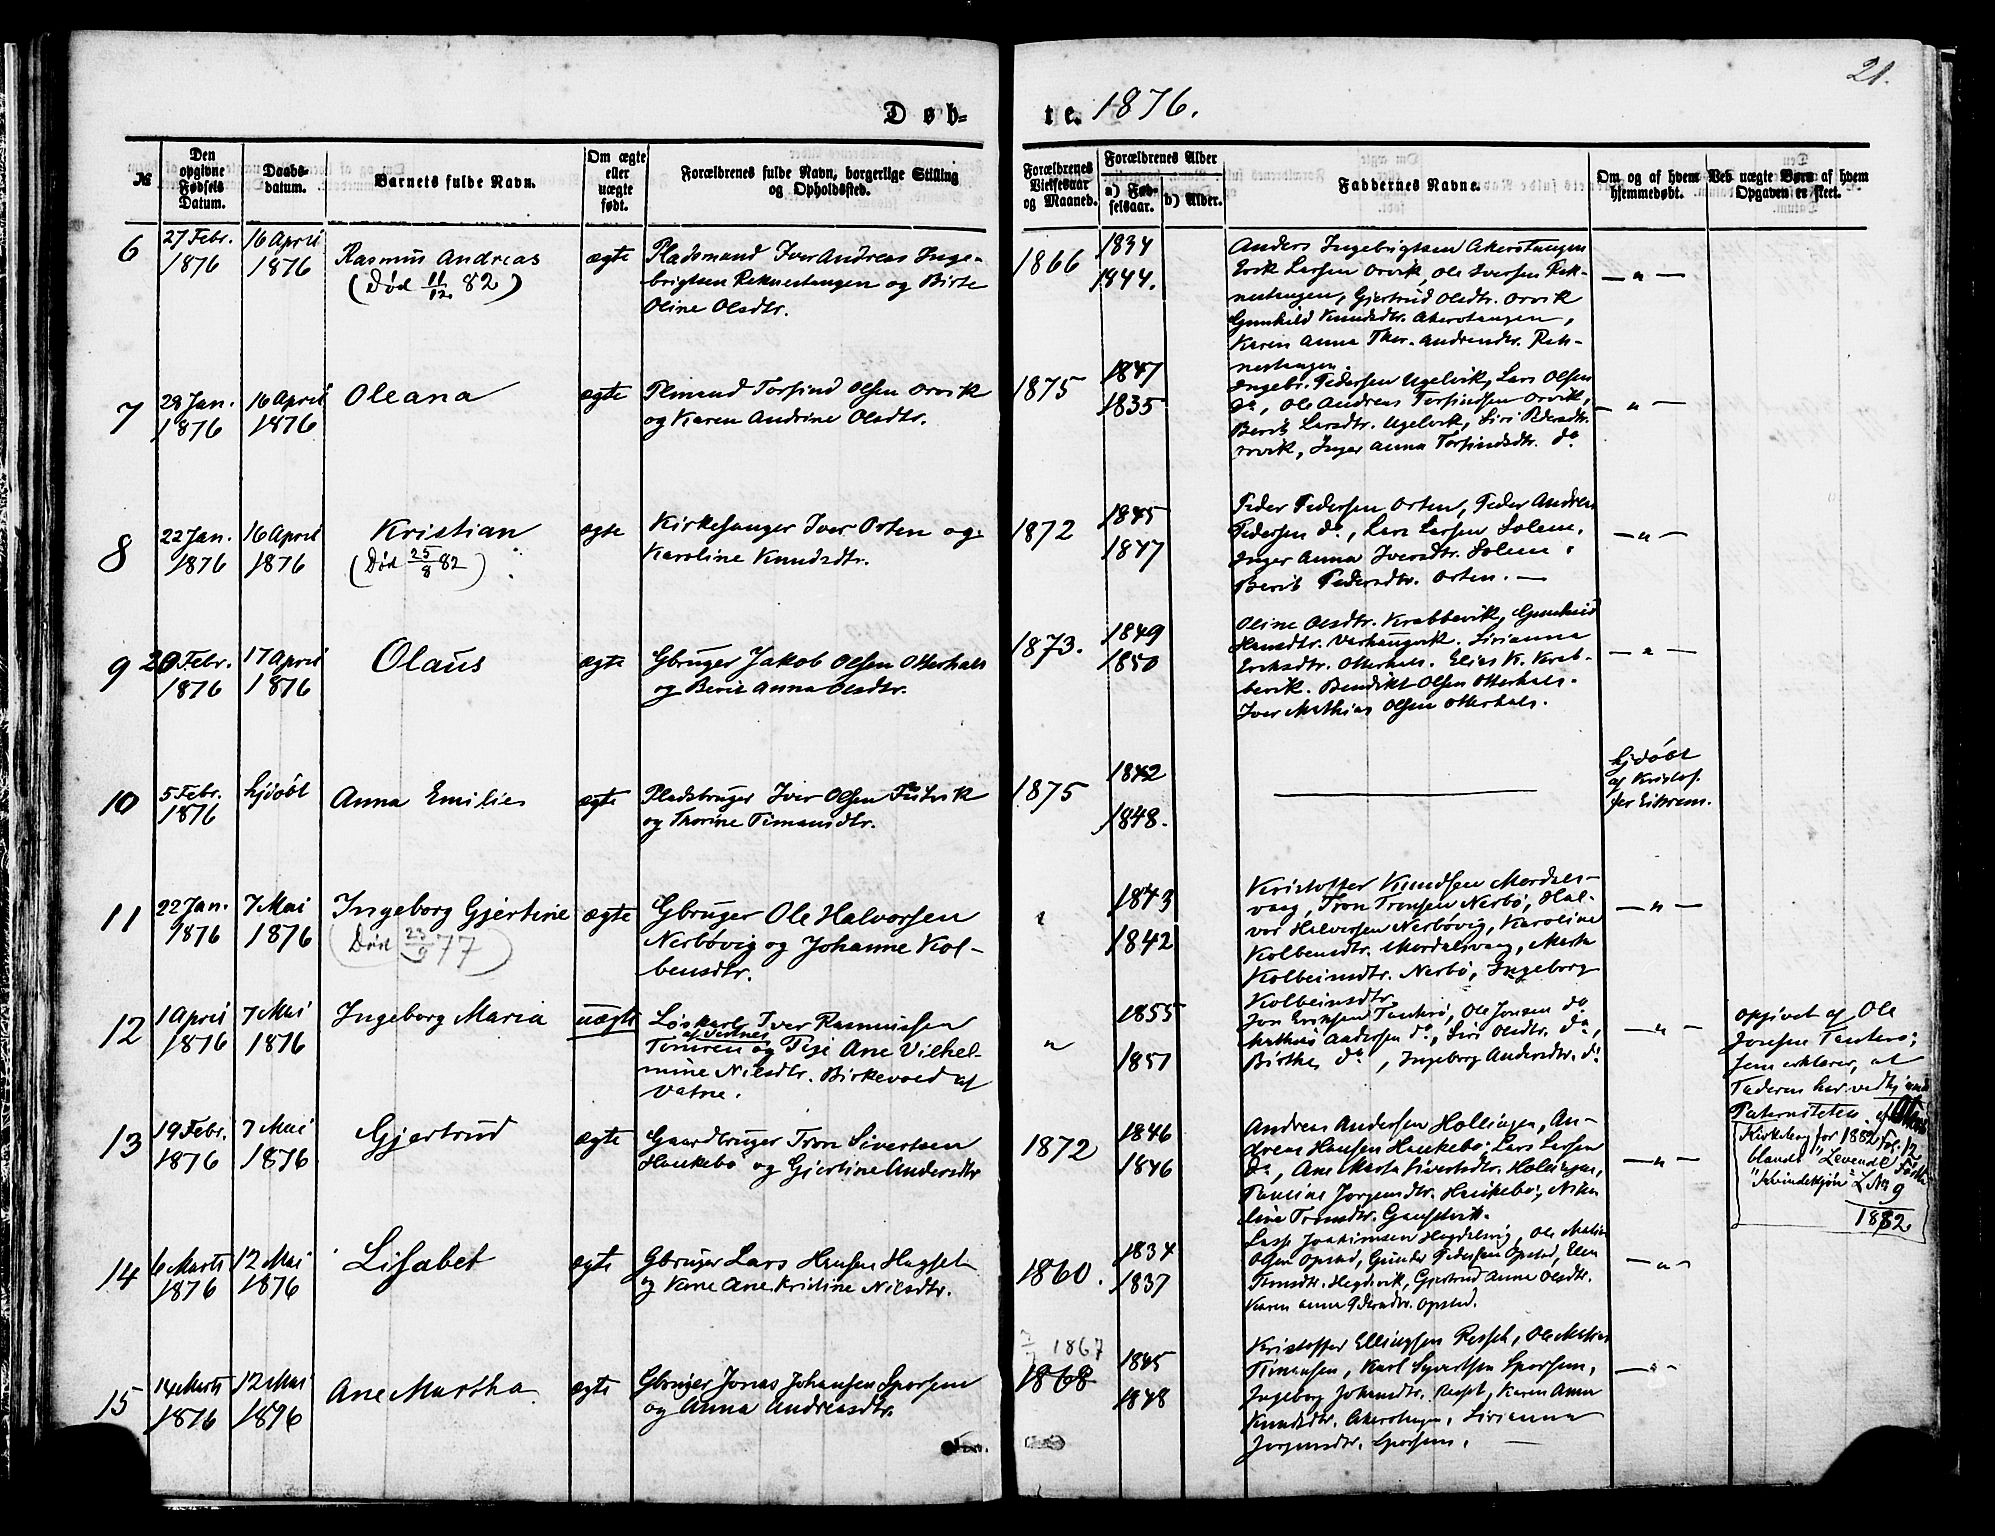 21.
Døb-
te. 1876.
№
Den opgivne Fødsels Datum.
Daabs-datum.
Barnets fulde Navn.
Om ægte eller uægte født.
Forældrenes fulde Navn, borgerlige Stilling og Opholdssted.
Forældrenes Vielsesaar og Maaned.
Forældrenes Alder
a) Fød-selsaar.
b) Alder.
Faddernes Navne.
Om og af hvem hjemmedøbt.
Ved uægte Børn af hvem Opgaven er skeet.
6
27 Febr. 1876
16 April 1876
Rasmus Andreas
(Død 11/12 82)
ægte
Pladsmand Iver Andreas Inge-
brigtsen Reknestangen og Birte
Oline Olsdtr.
1866
1834
1844.
Anders Ingebrigtsen Akerstangen
Erik Larsen Orvik, Ole Iversen Rek-
nestangen, Gjertrud Olsdtr. Orvik
Gunhild Knudsdtr. Akerstangen,
Karen Anna Thor. Andreasdtr. Rek-
nestangen.
— " —
7
28 Jan. 1876
16 April 1876
Oleana
ægte
Plmand Torfind Olsen Orvik
og Karen Andrine Olsdtr.
1875
1847
1835
Ingebr. Pedersen Ugelvik, Lars Olsen
do, Ole Andreas Torfindsen Orvik,
Berit Larsdtr. Ugelvik, Siri Pedersdtr.
Orvik, Inger Anna Torfindsdtr. do
— " —
8
22 Jan. 1876
16 April 1876
Kristian
(Død 25/8 82)
ægte
Kirkesanger Iver Orten og
Karoline Knudsdtr.
1872
1845
1847
Peder Pedersen Orten, Peder Andreas
Pedersen do, Lars Larsen Solem,
Inger Anna Iversdtr. Solem,
Berit Pedersdtr. Orten. —
— " —
9
20 Febr. 1876
17 April 1876
Olaus
ægte
Gbruger Jakob Olsen Otterhals
og Berit Anna Olsdtr.
1873.
1849
1850
Oline Olsdtr. Krabbevik, Gunhild
Hansdtr. Varhaugvik. Sirianna
Eriksdtr. Otterhals. Elias K. Krab-
bevik. Bendikt Olsen Otterhals.
Iver Mathias Olsen Otterhals.
— " —
10
5 Febr. 1876
hjdøbt
Anna Emilie
ægte
Pladsbruger Iver Olsen
og Thorine Timansdtr.
1875
1842
1848.
hjdøbt
af Kristof-
fer Eikrem.
11
22 Jan. 1876
7 Mai 1876
Ingeborg Gjertine
(Død 23/9 77)
ægte
Gbruger Ole Halvorsen
Nerbøvig og Johanne Kol-
bensdtr.
"
1843
1842
Kristoffer Knudsen Mordals-
vaag, Tron Tronsen Nerbø, Hal-
vor Halvorsen Nerbøvig, Karoline
Kolbensdtr. Mordalsvaag, Marta
Kolbeinsdtr. Nerbø, Ingeborg
Kolbeinsdtr.
— " —
12
1 April 1876
7 Mai 1876
Ingeborg Maria
uægte
Løskarl Iver Rasmussen
og Pige Ane Vilhel-
mine Nilsdtr. Birkevold af
Vatne.
"
1855
1851
Jon Eriksen Tautrø, Ole Jonsen do
Mathias Andersen do, Siri Olsdtr. do,
Birthe do, Ingeborg Andersdtr. do
— " —
opgivet af Ole
Jonsen Tautrø;
som erklærer, at
Faderen har vedkjendt
Paterniteten.
Kirkebog for 1882 Fol. 12
blandt "Levende Fødte
Kvindekjøn" No 9
1882
13
19 Febr. 1876
7 Mai 1876
Gjertrud
ægte
Gaardbruger Tron Sivertsen
Haukebø og Gjertine Andersdtr
1872
1846
1846
Andreas Andersen Hollingen, An-
dreas Hansen Haukebø, Lars Larsen
do, Ane Marta Sivertsdtr. Hollingen,
Pauline Jørgensdtr. Haukebø, Niko
line Tronsdtr.
— " —
14
6 Marts 1876
12 Mai 1876
Lisabet
ægte
Gbruger Lars Hansen Hagset
og Kone Ane Kristine Nilsdtr.
1860.
1834
1837
Lasse Joakimsen Hegdalsvig, Ole Matias
Olsen Opstad, Gunder Pedersen Opstad, Elen
Tronsdtr. Hegdalvik, Gjertrud Anne Olsdtr.
Karen Anne Pedersdtr. Opstad.
— " —
15
14 Marts 1876
12 Mai 1876
Ane Martha
ægte
Gbruger Jonas Johansen Sporsem
og Anna Andreasdtr.
1867
1868
1845
1848
Kristoffer Ellingsen Respt, Ole Matias
Timansen, Karl Syvertsen Sporsem,
Ingeborg Johansdtr. Respt, Karen Anna
Knudsdtr. Akerstangen, Sirianna
Jørgensdtr. Sporsem.
— " —